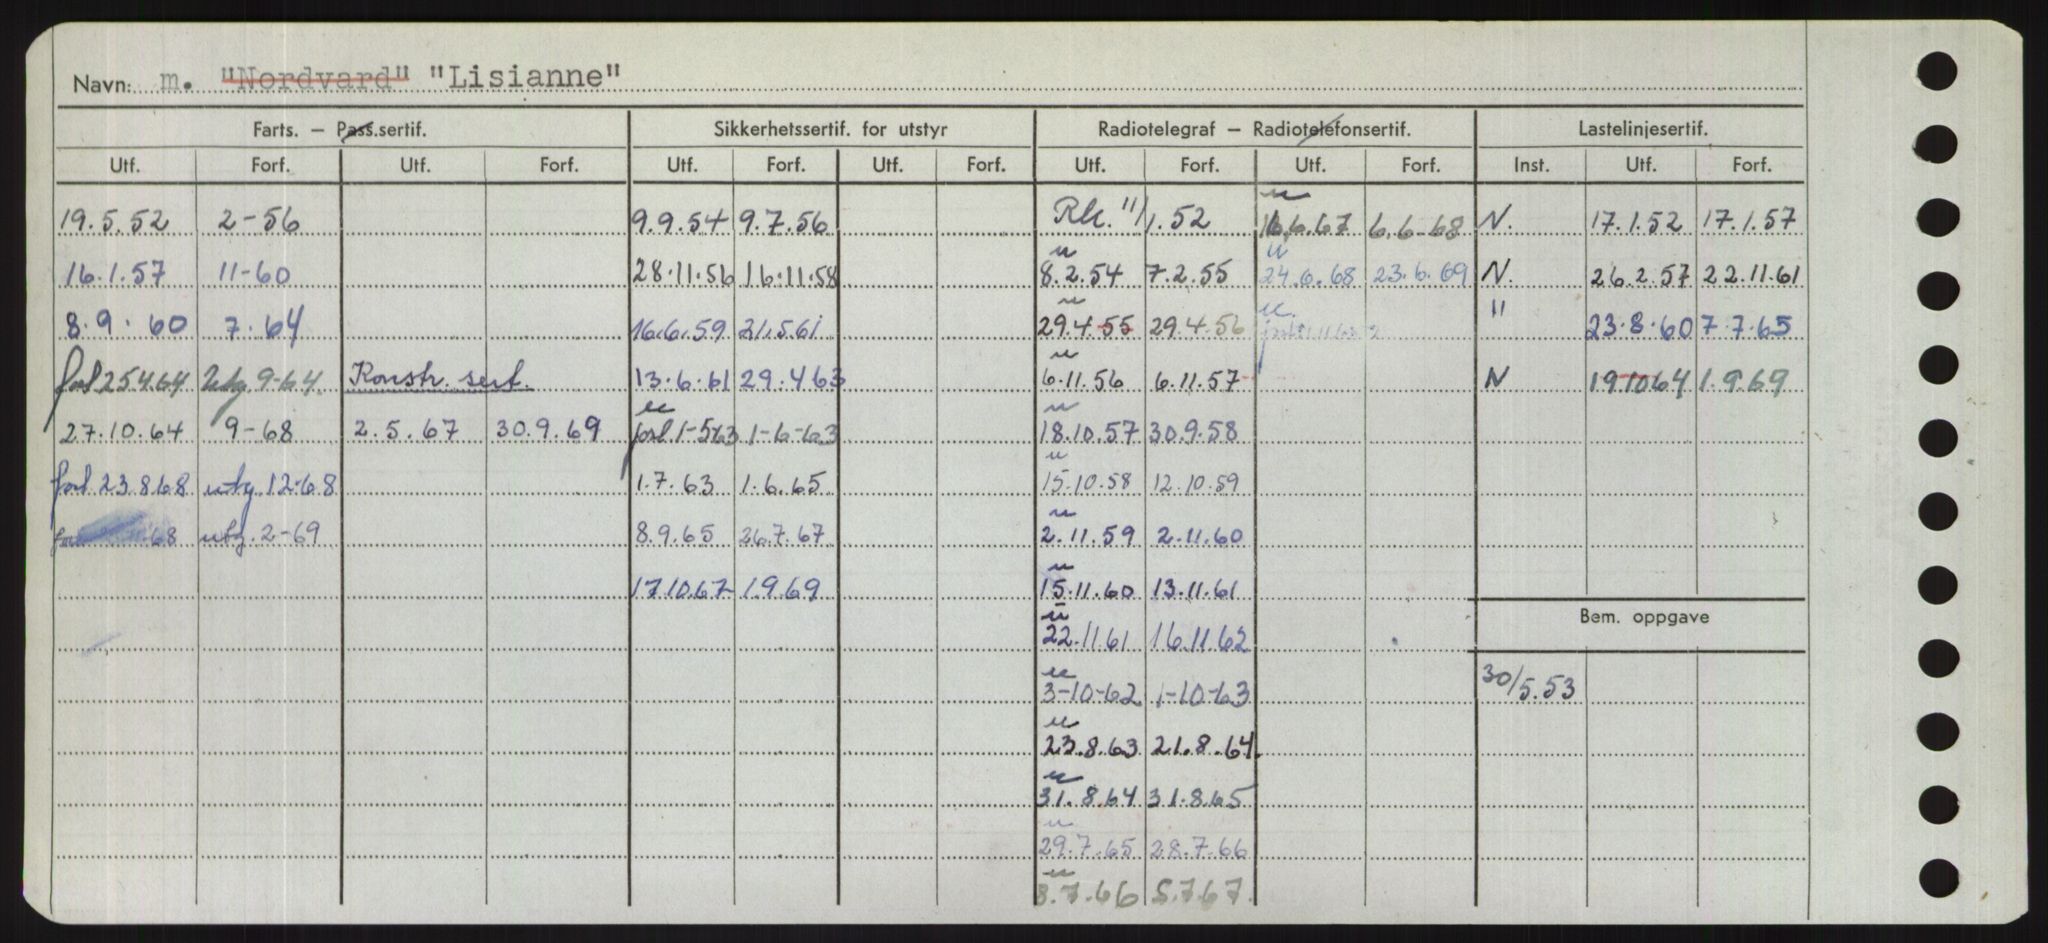 Navn: m. "Nordvard" "Lisianne"
Farts. – Pass.sertif. Sikkerhetssertif. for utstyr Radiotelegraf – Radiotelefonsertif. Lastelinjesertif.
Utf. Forf. Utf. Forf. Utf. Forf. Utf. Forf. Utf. Forf. Utf. Forf. Inst. Utf. Forf.
19.5.52 2-56 9.9.54 9.7.56 Rk. 11/1.52 u 16.6.67 6.6-68 N. 17.1.52 17.1.57
16.1.57 11-60 28.11.56 16.11.58 u 8.2.54 7.2.55 u 24.6.68 23.6.69 N. 26.2.57 22.11.61
8.9.60 7.64 16.6.59 21.5.61 u 29.4.55 29.4.56 u " 23.8.60 7.7.65
forl 25.4.64 utg. 9-64. Konstr. sert. 13.6.61 29.4.63 u 6.11.56 6.11.57 N 19.10.64 1.9.69
27.10.64 9-68 2.5.67 30.9.69 u forl. 1-5-63 1-6-63 u 18.10.57 30.9.58
forl. 23.8.68 utg. 12-68 1.7.63 1.6.65 u 15.10.58 12.10.59
68 utg. 2-69 8.9.65 26.7.67 u 2.11.59 2.11.60
17.10.67 1.9.69 u 15.11.60 13.11.61
Bem. oppgave
u 22.11.61 16.11.62
u 3-10-62 1-10-63 30/5.53
u 23.8.63 21.8.64.
u 31.8.64 31.8.65
u 29.7.65 28.7.66
u 8.7.66 5.7.67.